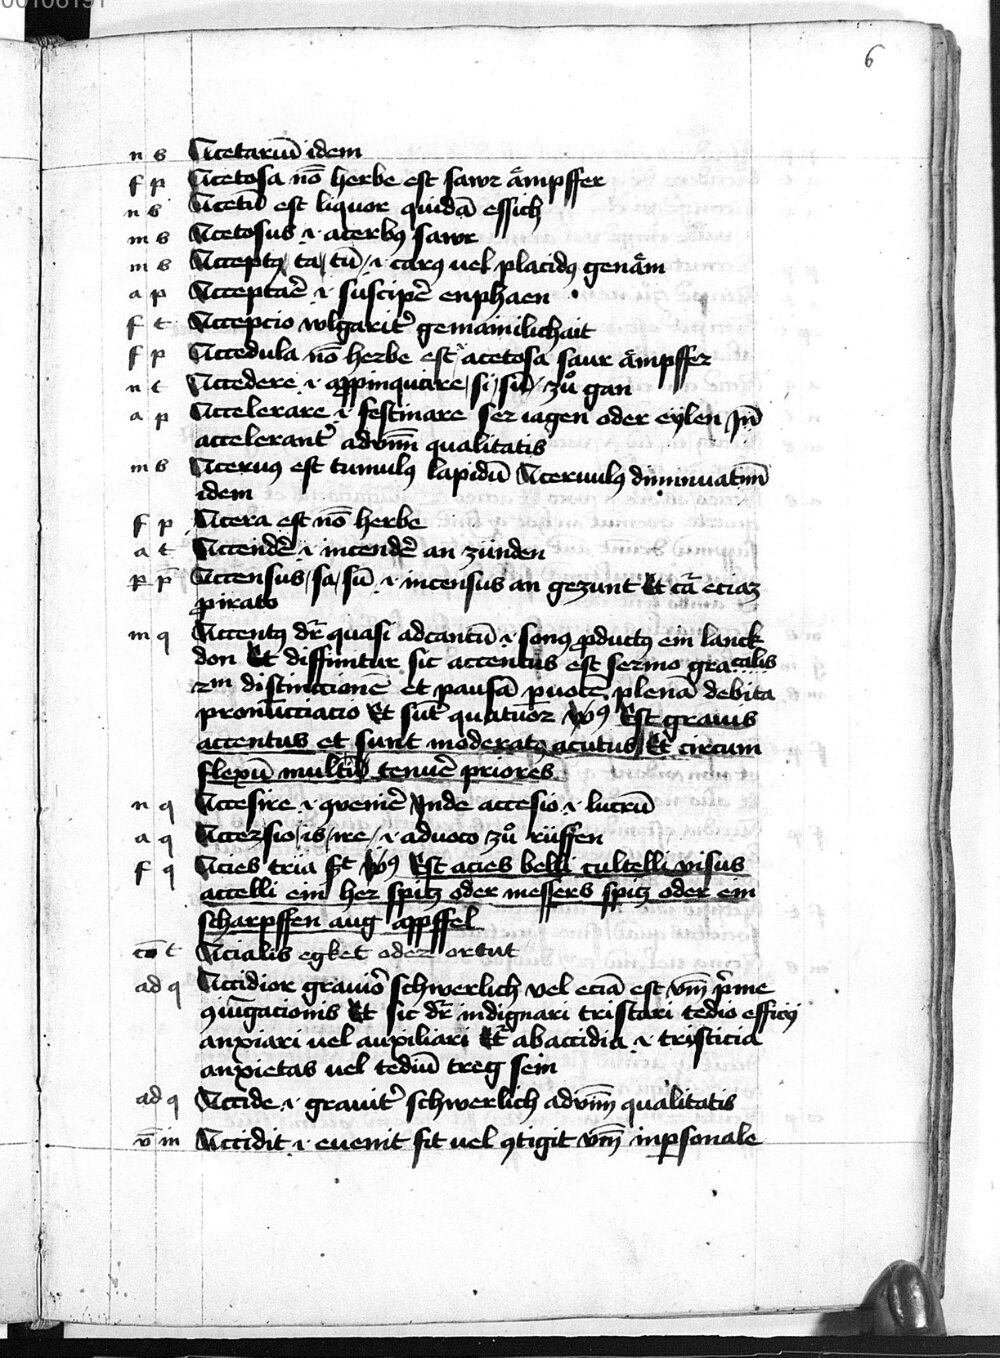 6
n s Acetariū idem
f p Acetosa nō herbe est sawr ämpffer
n s Acetū est liquor quidā essich
m s Acetosus .i. acerbꝰ sawr
m s Acceptꝰ ta tū .i. carꝰ uel placidꝰ genäm
a p Acceptaē .i. suscipē enphaen
f t Accepcio wlgarit̄ gemainilichait
f p Accedula nō herbe est acetosa saur ämpffer
n t Accedere .i. appinquare si sū zů gan
a p Accelerare .i. festinare ser iagen oder eylen Jn̄
accelerant̄ adv̄m̄ qualitatis
m s Acervꝰ est tumulꝰ lapidū Acervulꝰ diminuatiū
idem
f p Acera est nō herbe
a t Accendē .i. incendē an zünden
p p̄ Accensus sa sū .i. incensus an gezunt Et cā eciaz
pirato
m q Accentꝰ dr̄ quasi adcantū .i. sonꝰ ꝓductꝰ ein lanck
don Et diffinitur sic accentus est sermo gra calis
 distinccionē et pausā plenā debita
pronūcciacio Et sūt quatuor v̄sꝰ Est gravis
accentus et sunt moderatꝰ acutus Et circum
flexū tenuē priores
n q Accesire .i. ꝯvenīē Jnde accesio .i. lucrū
a q Accersio is ire .i. advoco zů rüffen
f q Acies tria st v̄sꝰ Est acies belli cultelli visus
accelli ein her spitz oder messers spitz oder ein
scharpffen aug appffel
t Acialis egket oder ortut
ad q Accidior gravīꝰ schwerlich vel eciā est v̄m̄ p̄me
ꝯiūgacionis Et sic dr̄ indignari tristari tedio efficij
anxiari uel auxiliari Et ab accidia .i. tristicia
anxietas uel tediū treg sein
ad q Accide .i. gravit̄ schwerlich adv̄m̄ qualitatis
v̄ in Accidit .i. evenit fit vel ꝯtigit v̄m̄ inpersonale